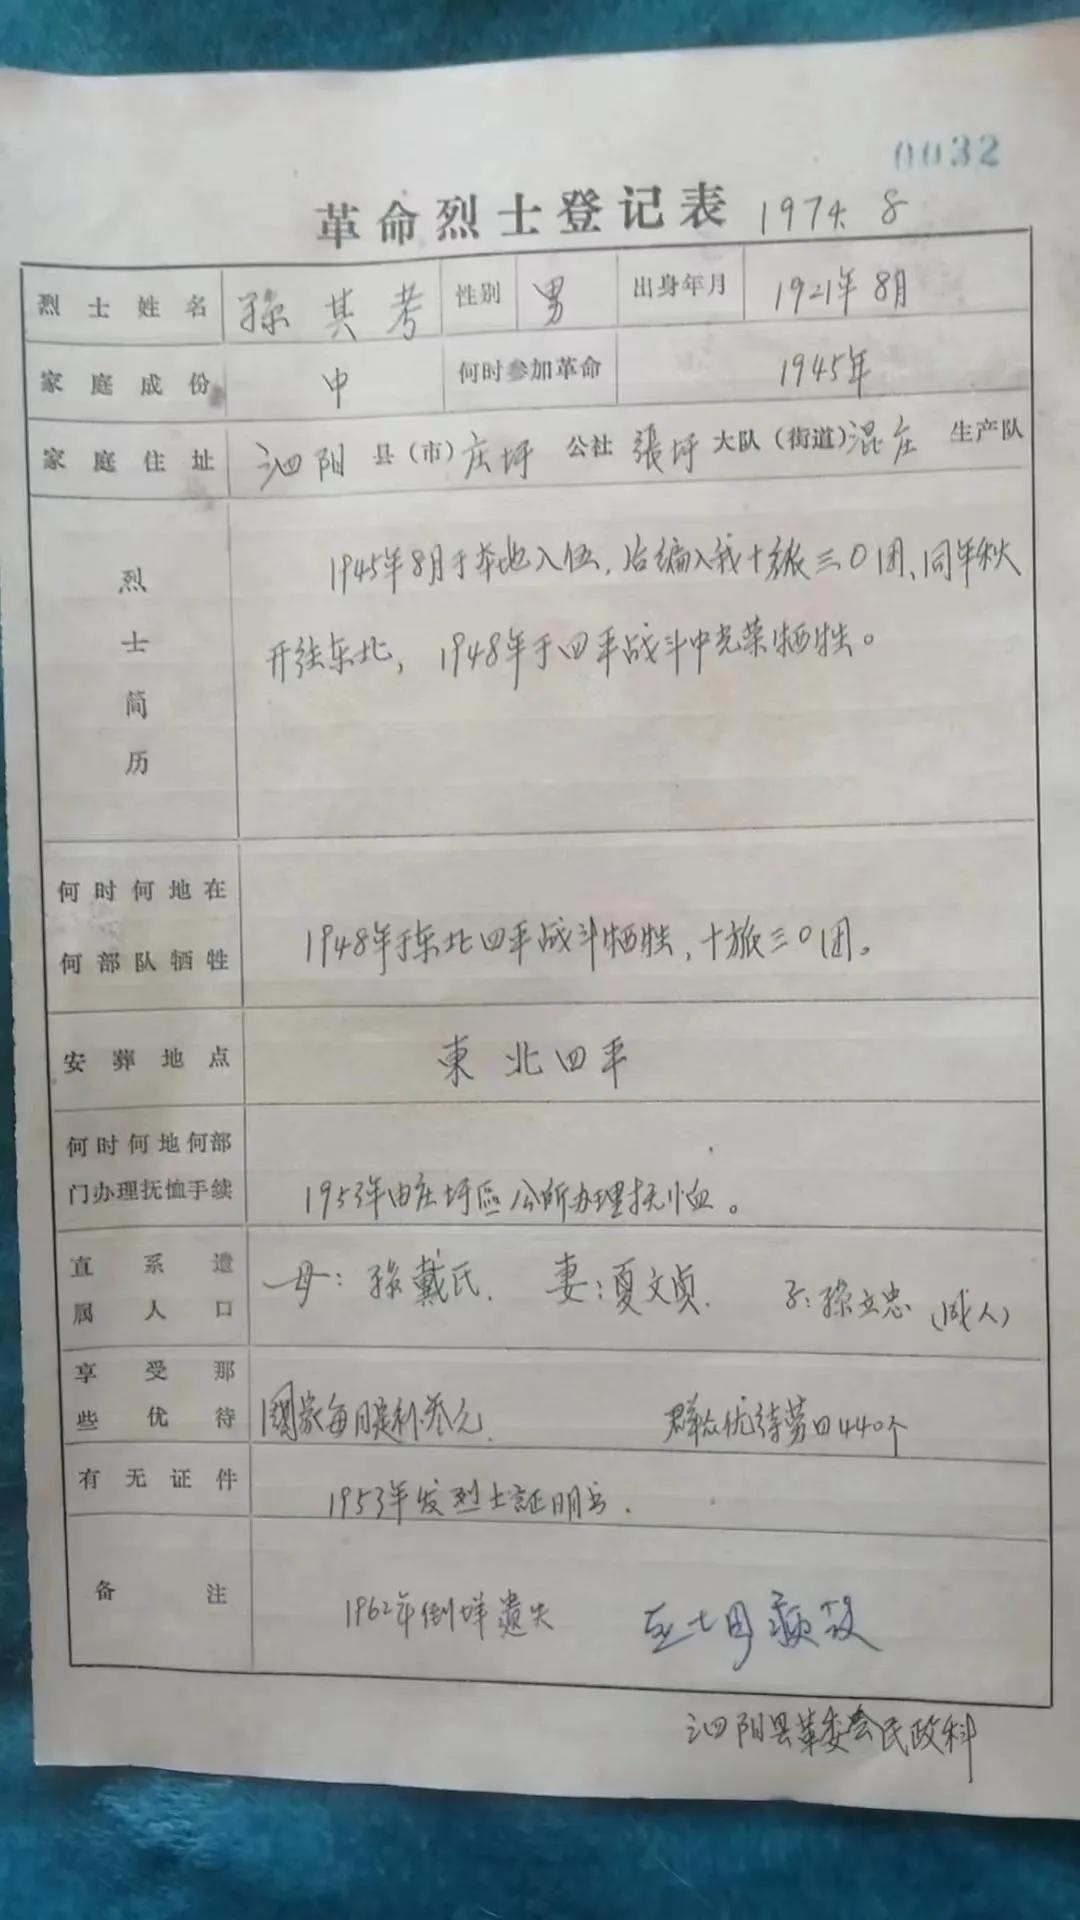 0032
革命烈士登记表 1974. 8
烈士姓名 孫其考 性别 男 出身年月 1921年8月
家庭成份 中 何时参加革命 1945年
家庭住址 泗阳 县(市) 庄圩 公社 張圩 大队(街道) 混庄 生产队
烈士简历
1945年8月于本地入伍,后编入我十旅三〇团、同年秋
开往东北,1948年于四平战斗中光荣牺牲。
何时何地在
何部队牺牲
1948年于东北四平战斗牺牲,十旅三〇团。
安葬地点 東北四平
何时何地何部
门办理抚恤手续
1953年由庄圩區公所办理抚恤。
直系遗
属人口
母:孫戴氏. 妻:夏文贞. 子:孫立忠(成人)
享受那
些优待
國家每月定补叁元. 群众优待劳日440个
有无证件 1953年发烈士証明书.
备注 1962年倒垟遗失
泗阳县革委会民政科